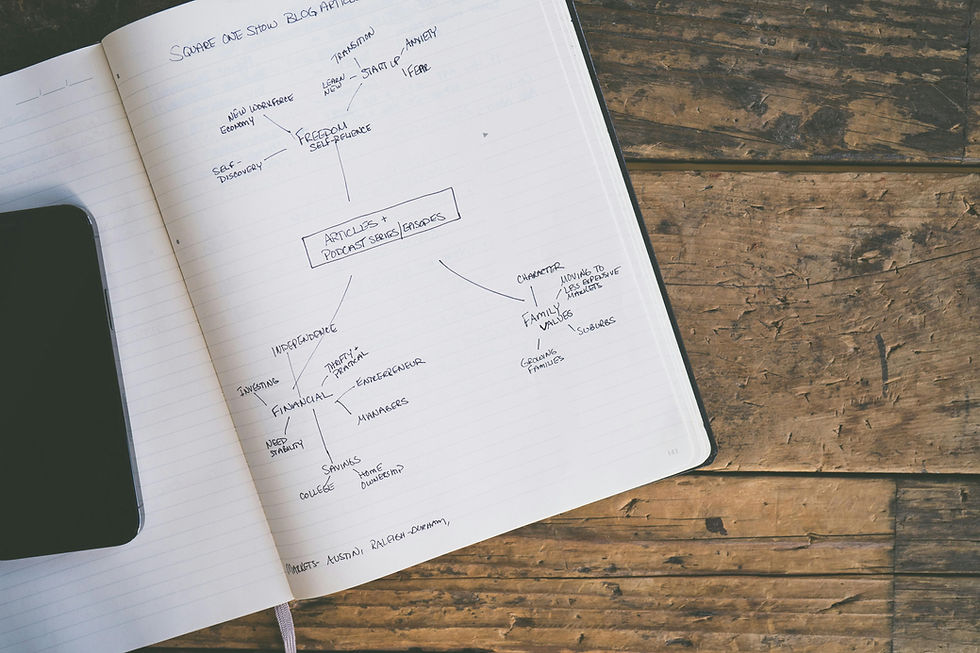 SQUARE ONE SHOW BLOG ARTICLE
TRANSITION
ANXIETY
LEARN
NEW
START UP
FEAR
NEW WORKFORCE
ECONOMY
FREEDOM
SELF-RELIENCE
SELF-
DISCOVERY
ARTICLES +
PODCAST SERIES/EPISODES
CHARACTER
MOVING TO
LESS EXPENSIVE
MARKETS
FAMILY
VALUES
SUBURBS
GROWING
FAMILIES
INDEPENDENCE
THRIFTY +
PRACTICAL
INVESTING
ENTREPRENEUR
FINANCIAL
MANAGERS
NEED
STABILITY
SAVINGS
HOME
OWNERSHIP
COLLEGE
MARKETS- AUSTIN, RALEIGH-DURHAM,
141